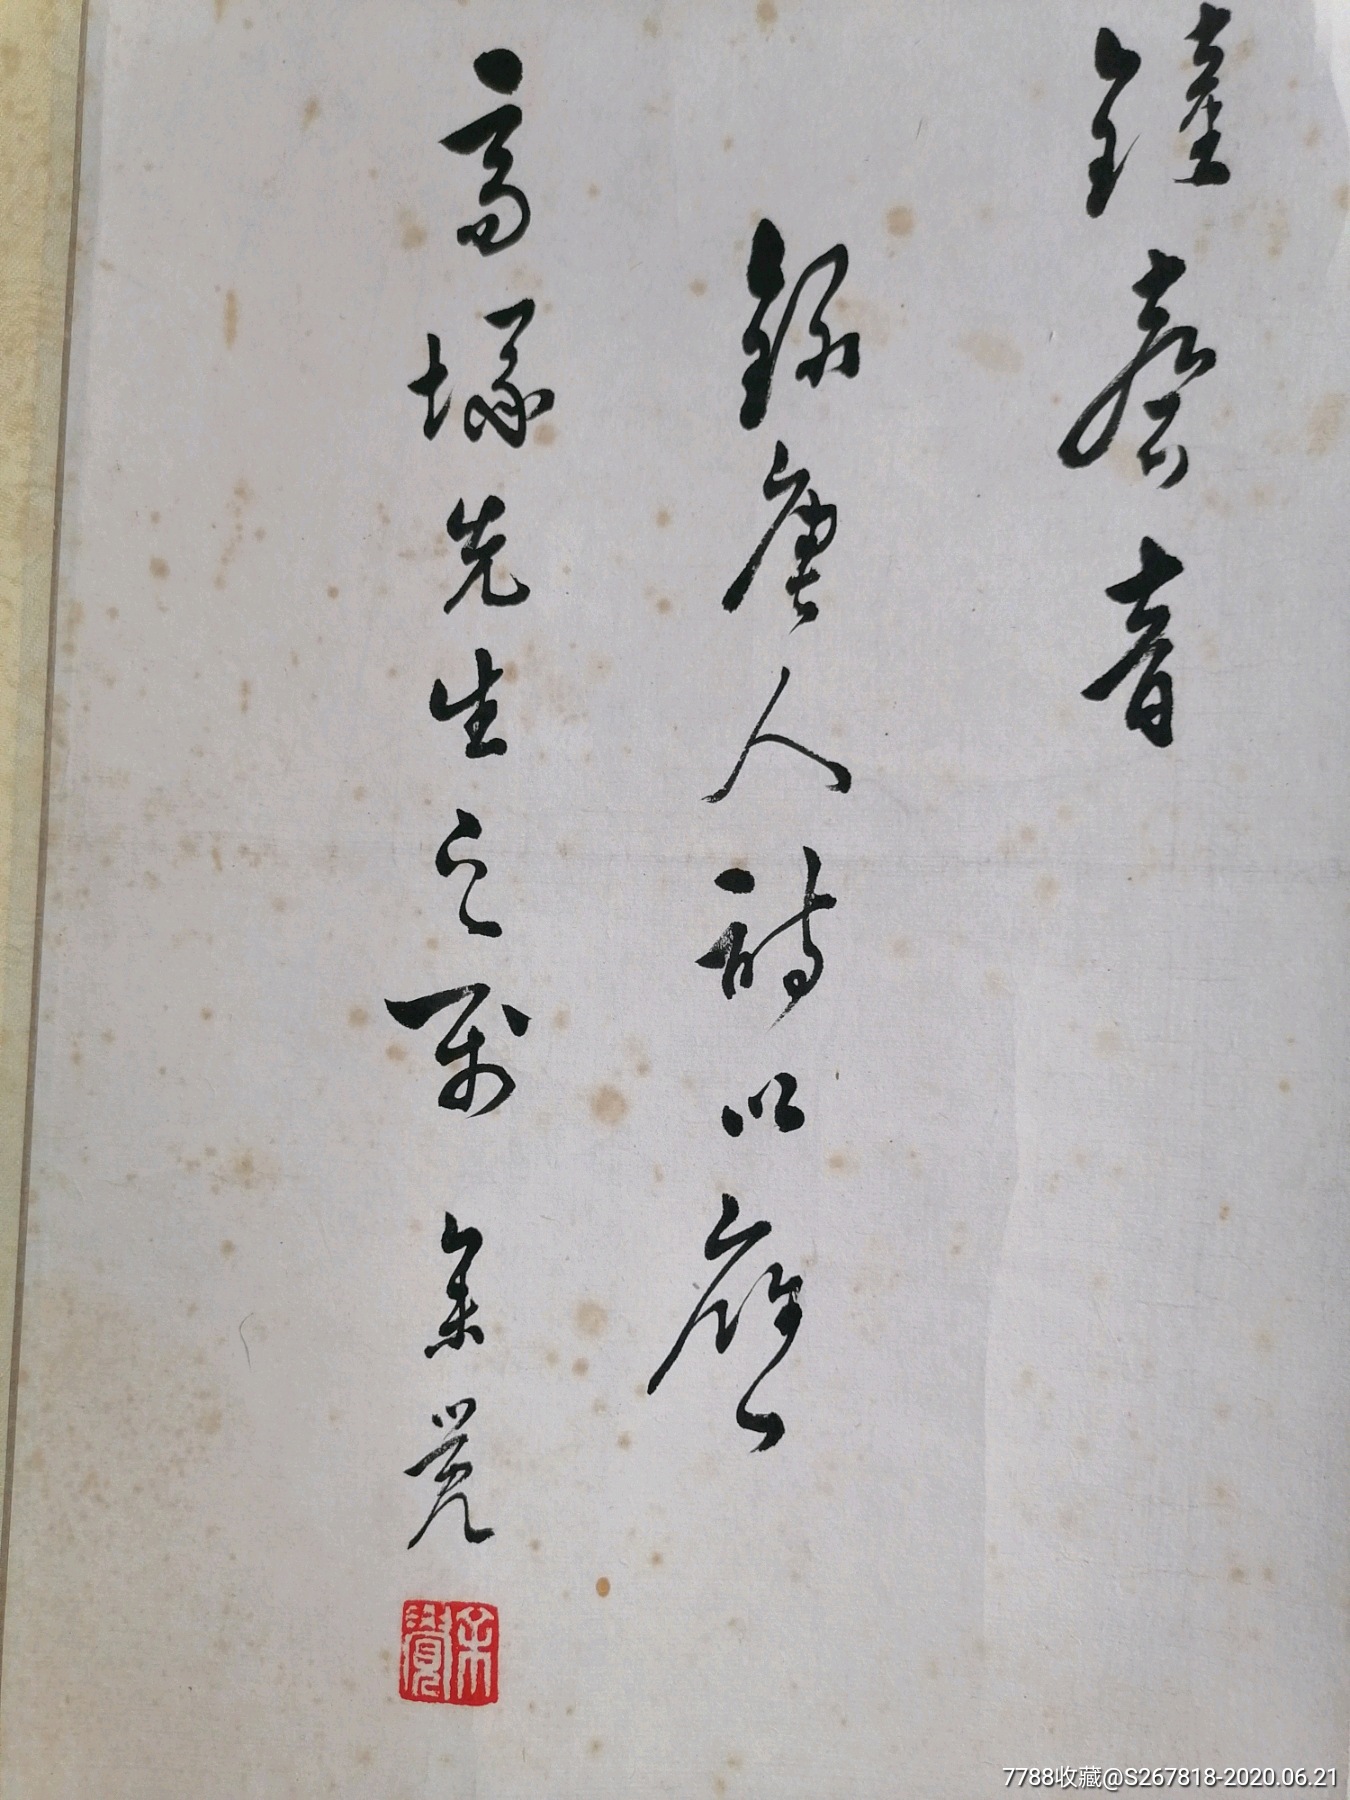 鐘磬音
錄唐人詩以應
高塚先生之屬 余覺
余覺
7788收藏@S267818-2020.06.21